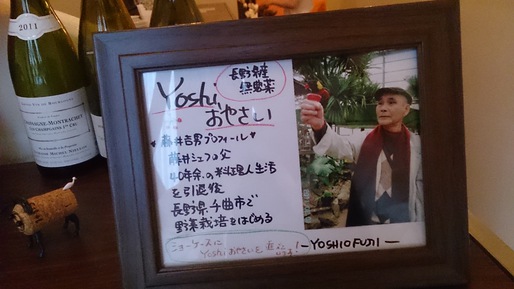 2011
CHASSAGNE-MONTRACHET
長野県産
無農薬
Yoshi
おやさい
*藤井吉男プロフィール*
藤井シェフの父
40年余の料理人生活
を引退後
長野県千曲市で
野菜栽培をはじめる
ショーケースに
Yoshiおやさいを
-YOSHIO FUJI-